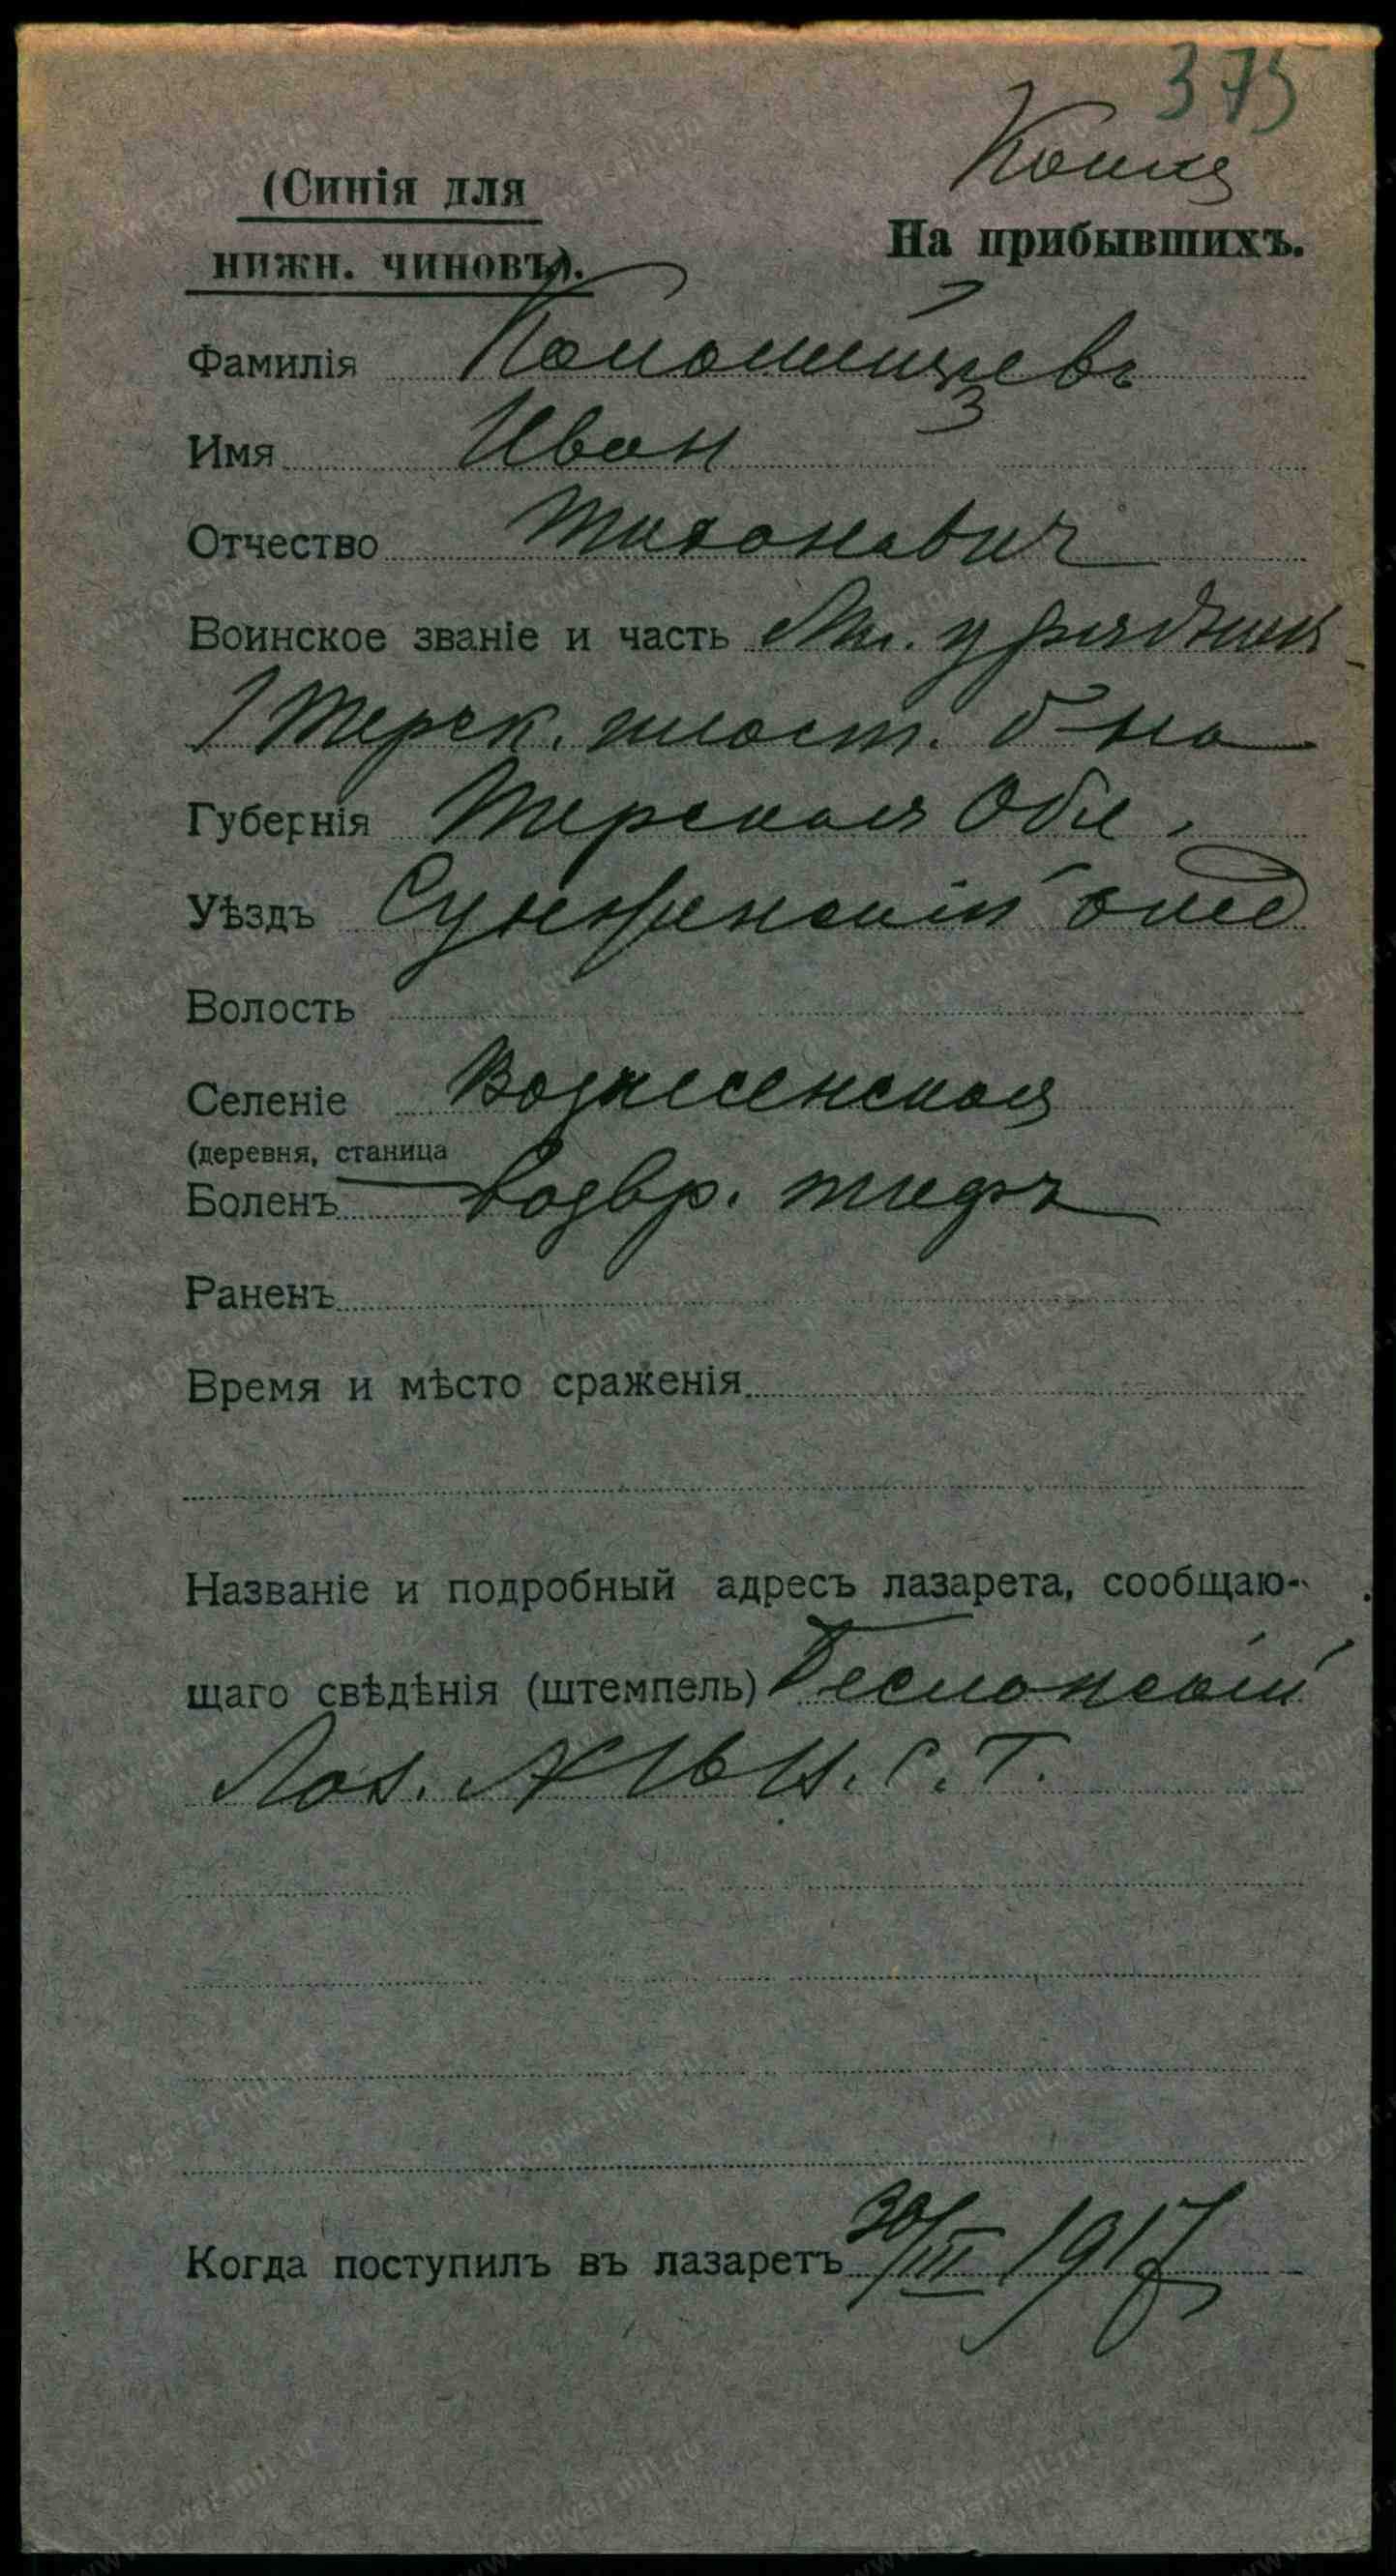 375
Копия
(Синія для
нижн. чиновъ).
На прибывшихъ.
Фамилія Коломийцевъ
Имя Иван
3
Отчество Тихонович
Воинское званіе и часть Мл. урядник
1 Терск. пласт. б-на
Губернія Терская Обл.
Уѣздъ Сунженскій отд
Волость
Селеніе Вознесенская
(деревня, станица
Боленъ Возвр. тифъ
Раненъ
Время и мѣсто сраженія
Названіе и подробный адресъ лазарета, сообщаю-
щаго свѣдѣнія (штемпель) Бесланскій
Лаз. № 16 С. Т.
Когда поступилъ въ лазаретъ 30/III 1917
www.gwar.mil.ru